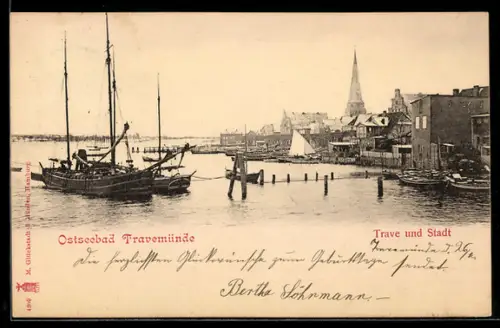 Ostseebad Travemünde
Trave und Stadt
Travemünde d. 26/2.
Die herzlichsten Glückwünsche zum Geburtstage sendet
Bertha Söhrmann.
M. Glückstadt & Münden, Hamburg.